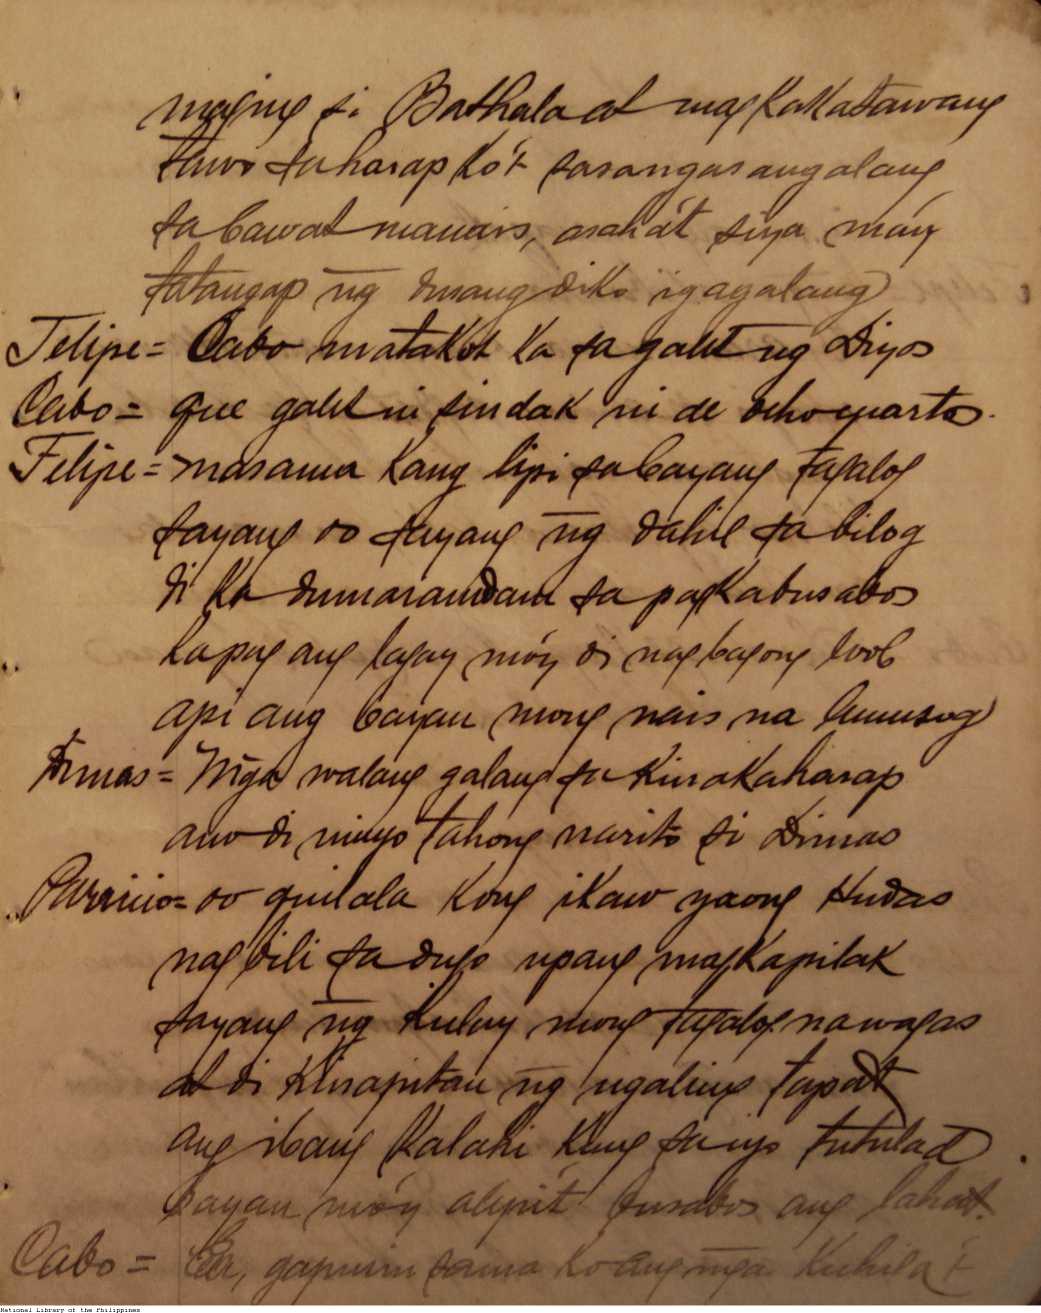 maging si Bathala at magkakatawang
tawo sa harap ko't sasangasangalang
sa bawat manais, asahát siya máy
tatangap ng̃ diko igagalang
Felipe = Cabo matakot ka sa galit ng Diyos
Cabo = que galit ni sindak ni de ocho cuartos.
Felipe = masama kang lipi sa bayang tagalog
sayang oo sayang ng̃ dahil sa bilog
di ka dumaramdam sa pagkabusabos
kapag ang lagay móy di nagbagong loob
api ang bayan mong nais na
Dimas = Mg̃a walang galang sa kinakaharap
ano di ninyo tahong narito si Dimas
oo quilala kong ikaw yaong Hudas
nagbili sa dugo upang magkapilak
sayang ng̃ kulay mong tagalog na wagas
at di kinapitan ng̃ ugaling tapat
ang ibang kalahi kung sa iyo tutulad
bayan móy alipi't busabos ang lahat.
Cabo = Ea, gapusin sama ko ang mg̃a
National Library of the Philippines